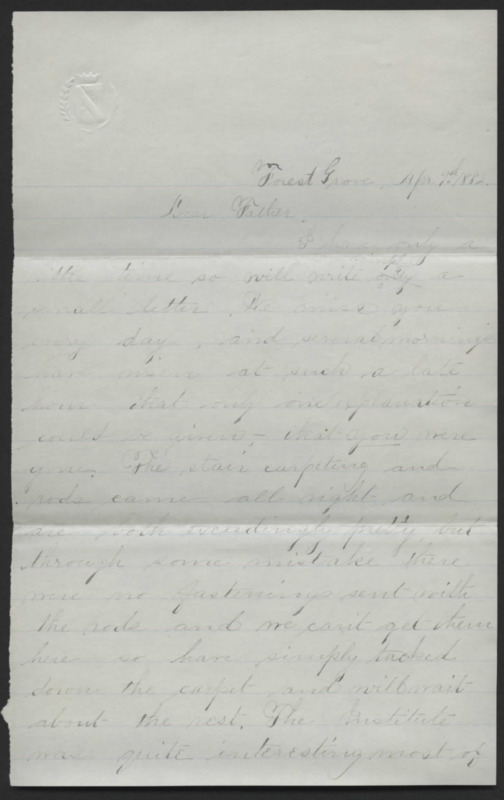 Forest Grove, Apr 1882.
Dear Father.
I have only a
little time so will write only a
small letter. We miss you
every day, and several mornings
have risen at such a late
hour that only one explanation
could be given,- that you were
gone. The stair carpeting and
rods came all right and
are both exceedingly pretty but
through some mistake there
were no fastenings sent with
the rods and we can't get them
here so have simply tacked
down the carpet and will wait
about the rest. The Institute
was quite interesting most of